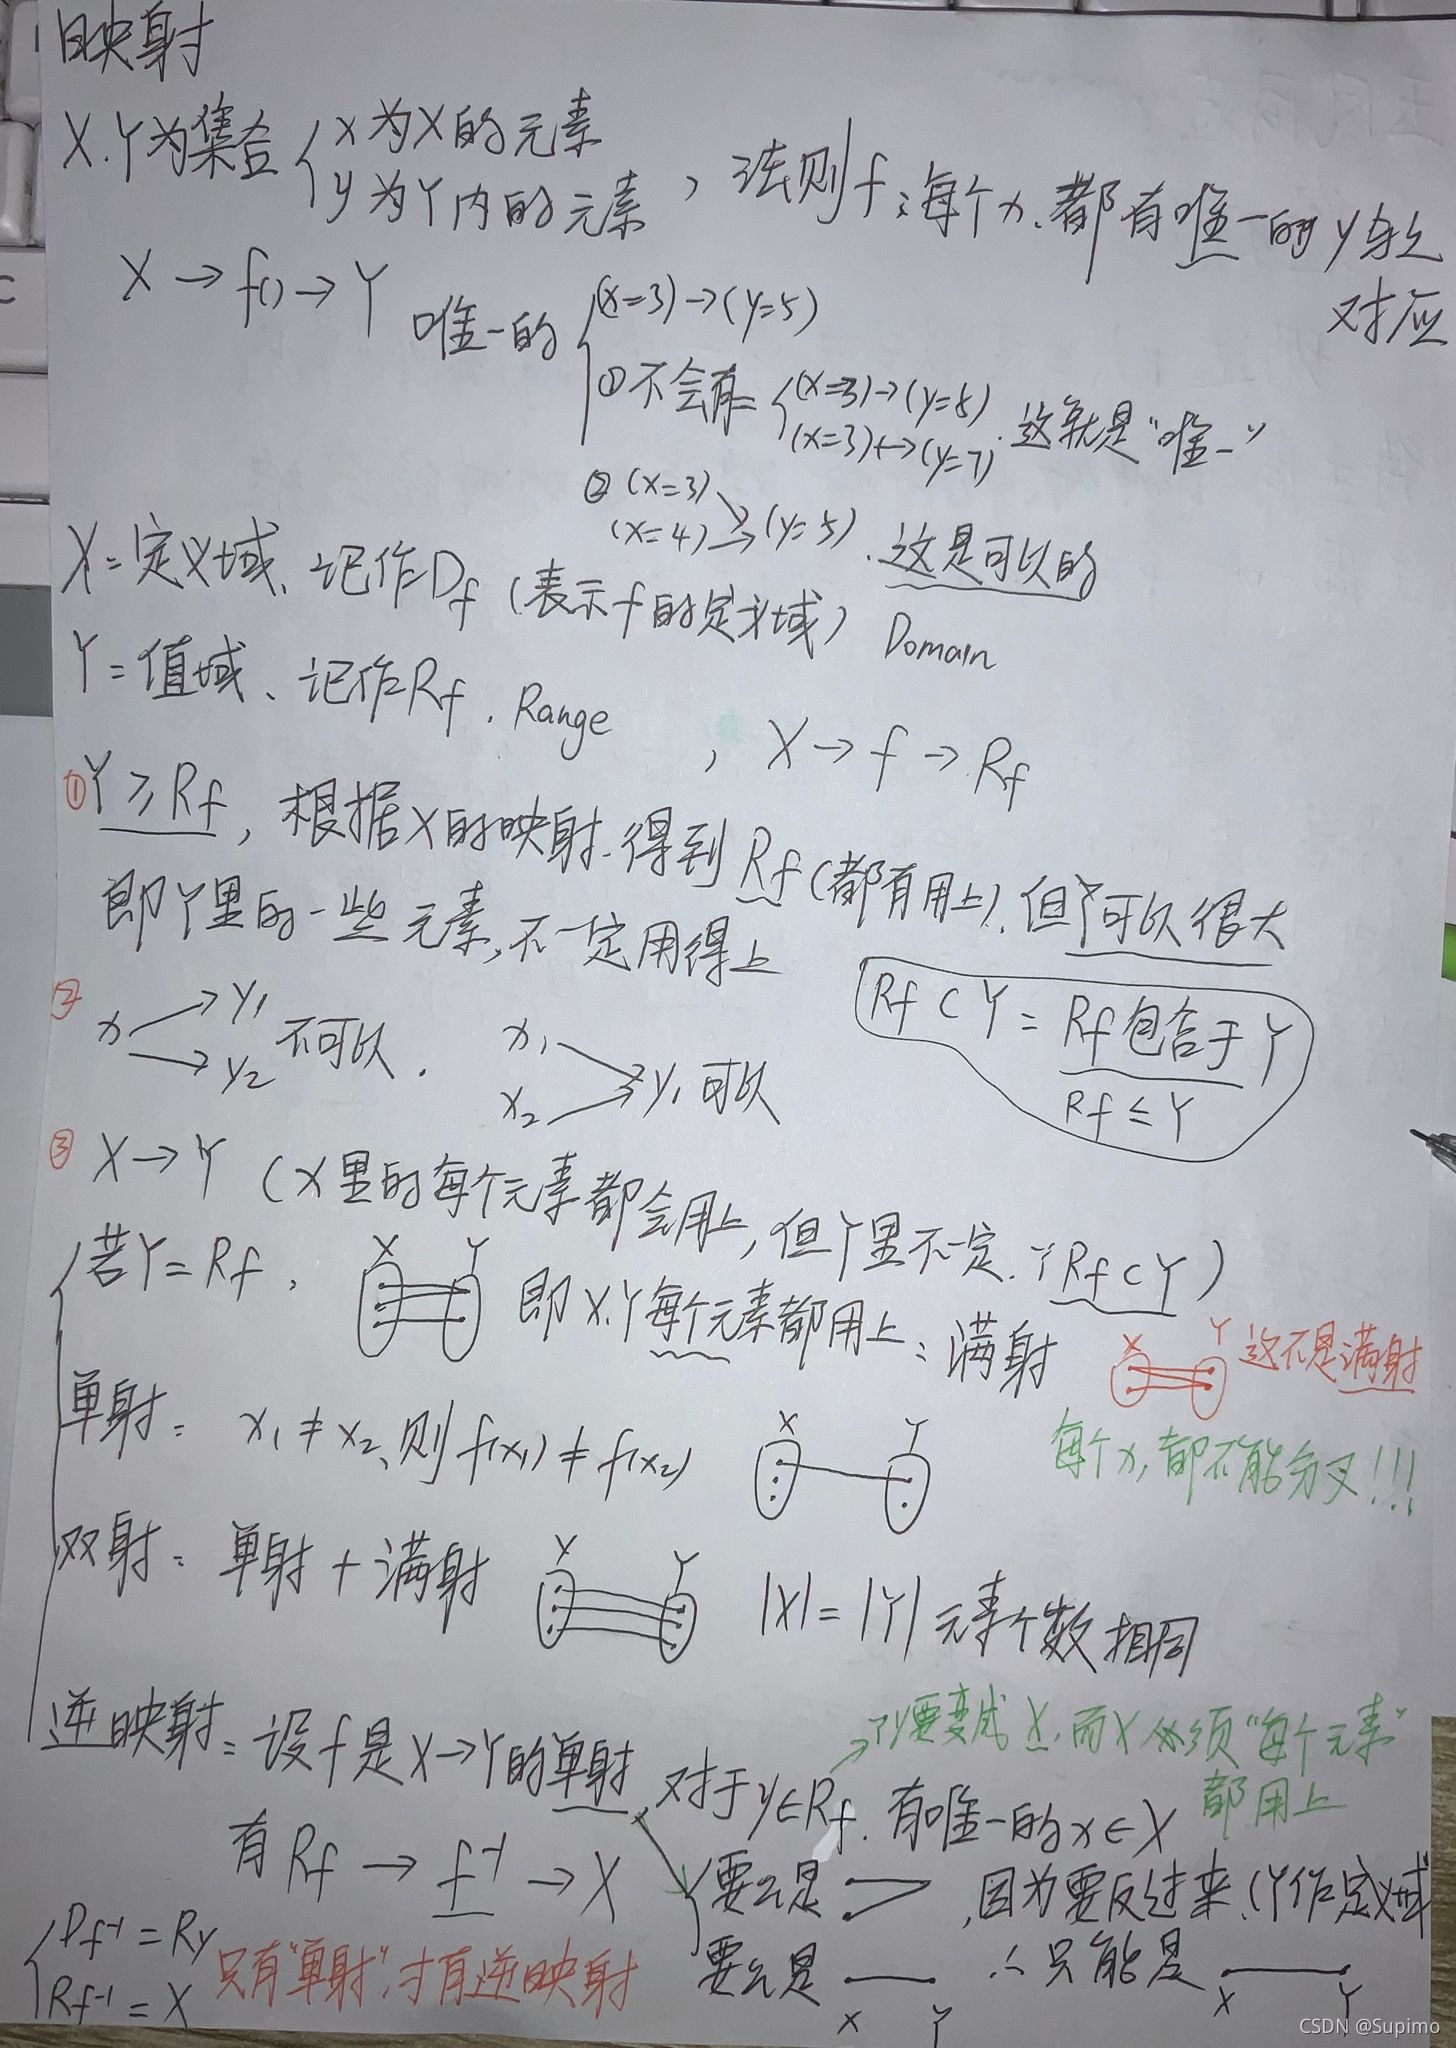 映射
X.Y为集合 { x为X的元素
y为Y内的元素 , 法则f:每个x.都有唯一的y与之
对应
X → f() → Y
唯一的 { (x=3)→(y=5)
①不会有= { (x=3)→(y=5)
(x=3)↔(y=7) .这就是“唯一”
② (x=3)
(x=4) → (y=5) . 这是可以的
X=定义域、记作Df (表示f的定义域) Domain
Y=值域、记作Rf . Range , X → f → Rf
①Y ≥ Rf , 根据X的映射.得到Rf(都有用上).但Y可以很大
即Y里的一些元素,不一定用得上
Rf ⊂ Y = Rf包含于Y
Rf ≤ Y
② x y1 y2 不可以. x1 x2 y1 可以
③ X→Y (X里的每个元素都会用上,但Y里不一定.∵Rf⊂Y)
若Y=Rf , X Y 即X.Y每个元素都用上:满射
X Y 这不是满射
每个x,都不能分叉!!!
单射= x1≠x2,则f(x1)≠f(x2) X Y
双射= 单射+满射 X Y |X|=|Y| 元素个数相同
逆映射=设f是X→Y的单射,对于y∈Rf.有唯一的x∈X
→了y要变成X,而X必须“每个元素”
都用上
有Rf → f-1 → X
要么是 ,因为要反过来.(Y作定义域
要么是 X Y ∴只能是 X Y
Df-1 = Ry
Rf-1 = X
只有“单射”,才有逆映射
CSDN @Supimo